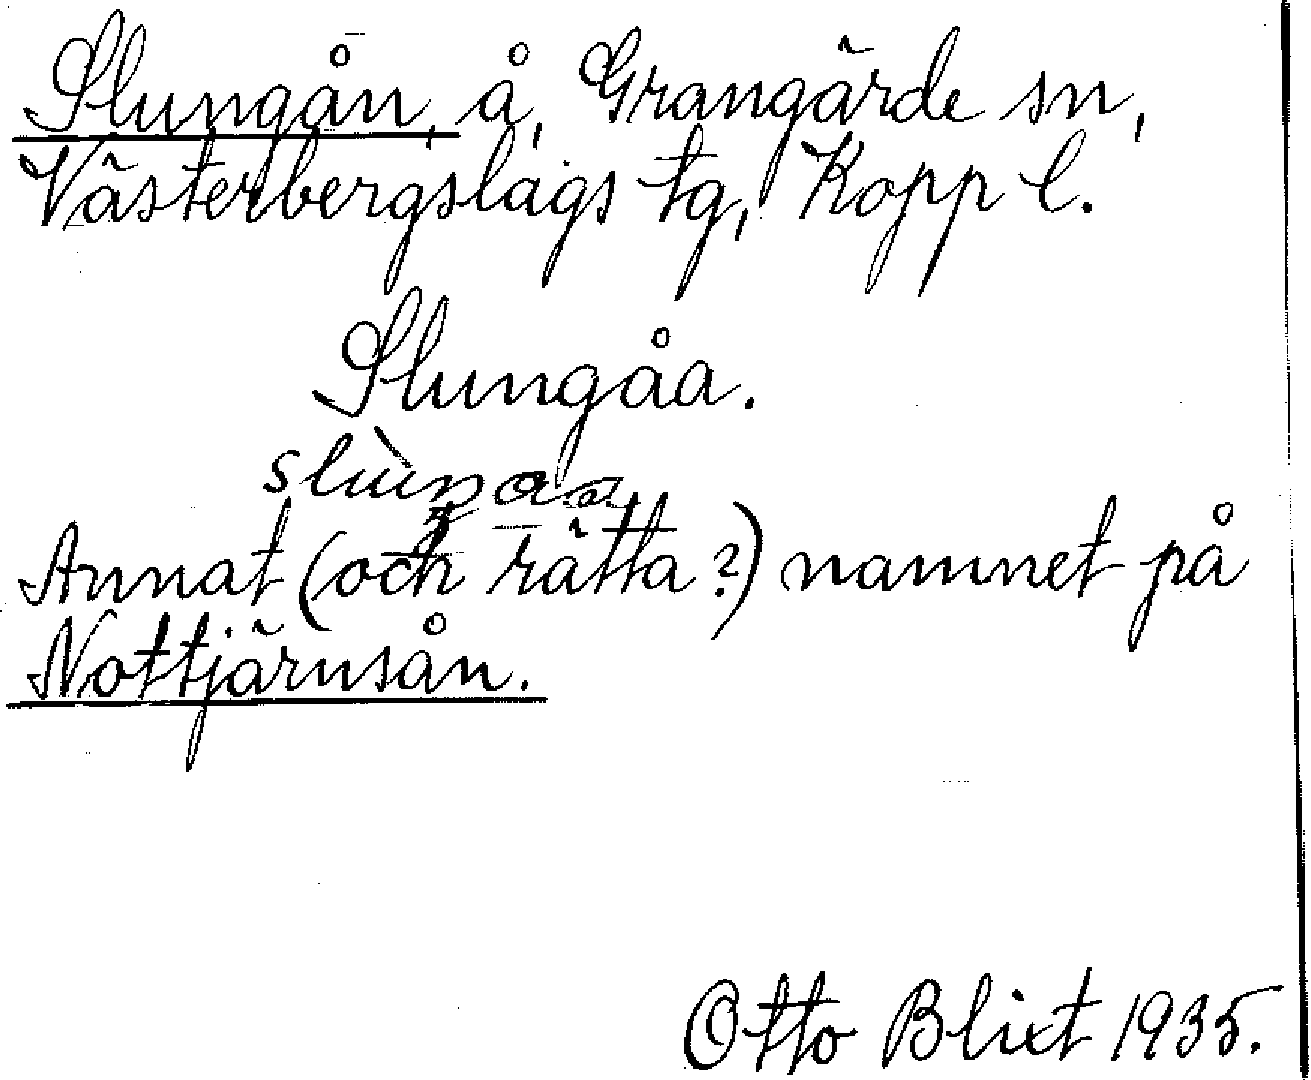 Slungån, å, Grangärde sn,
Västerbergslags tg, Kopp l.
Slungåa.
Annat (och rätta?) namnet på
Nottjärnsån.
Otto Blixt 1935.